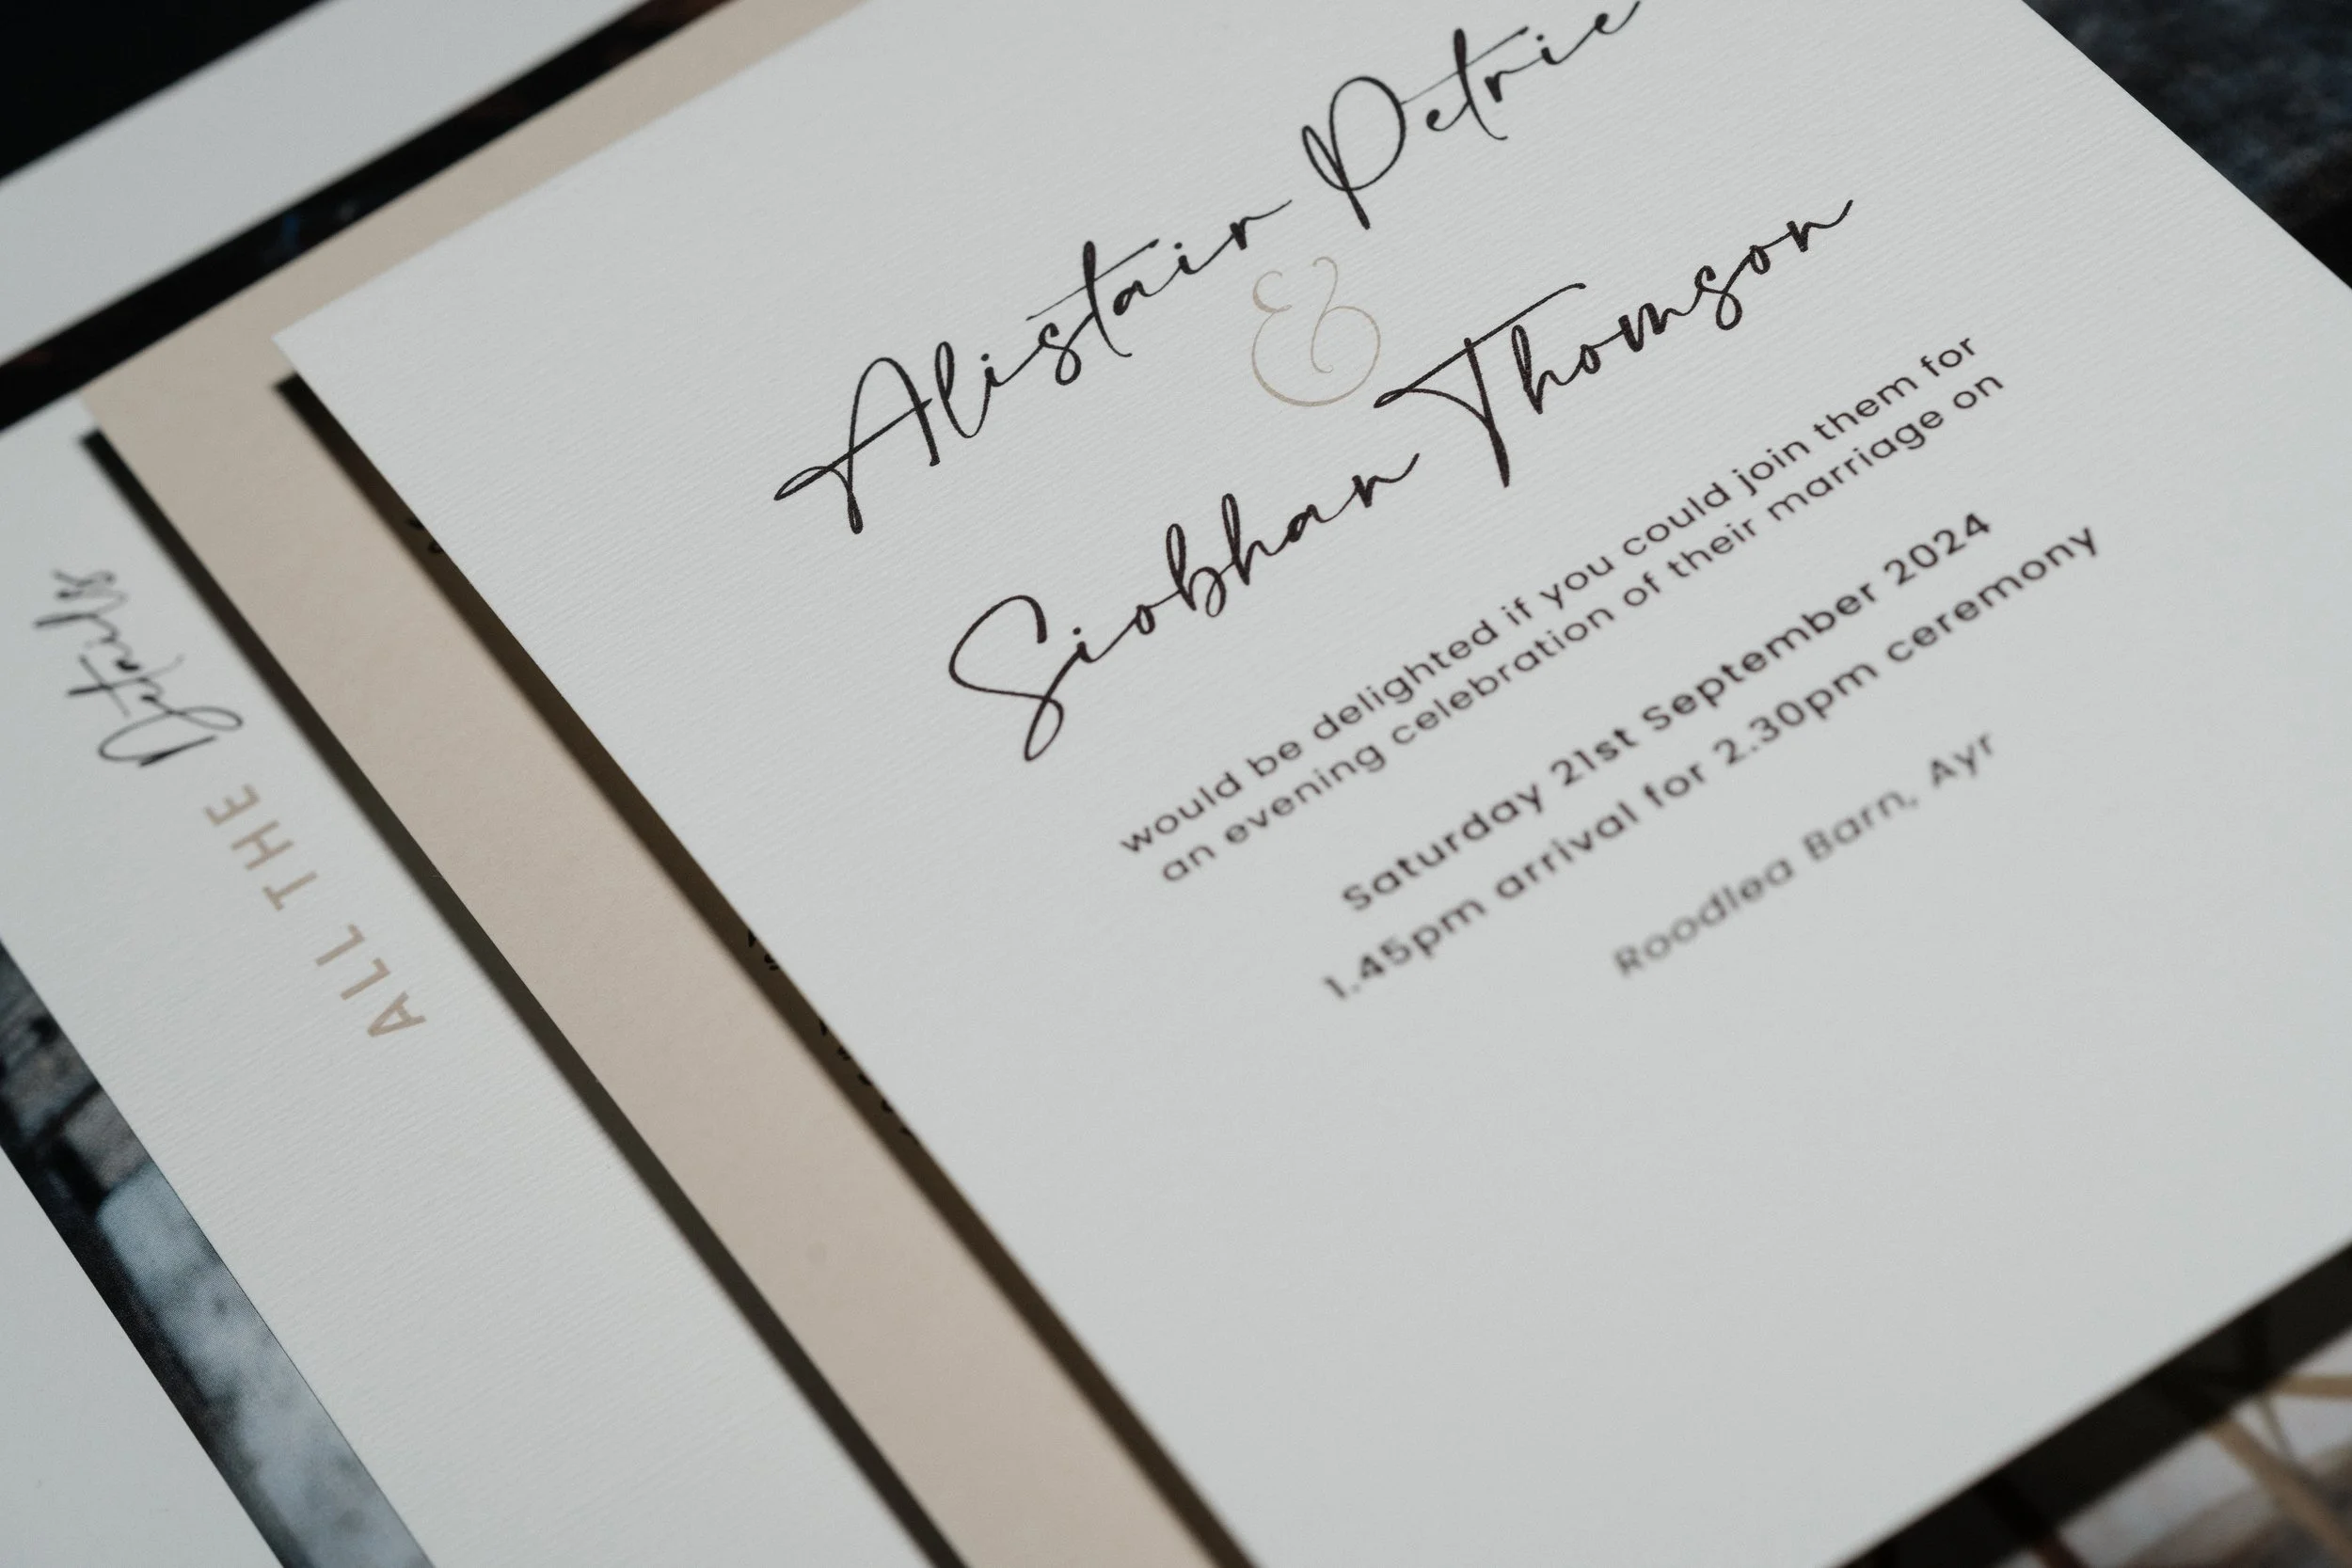 Alistair Petrie
&
Siobhan Thomson
would be delighted if you could join them for
an evening celebration of their marriage on
Saturday 21st September 2024
1.45pm arrival for 2.30pm ceremony
Roodlea Barn, Ayr
ALL THE Details